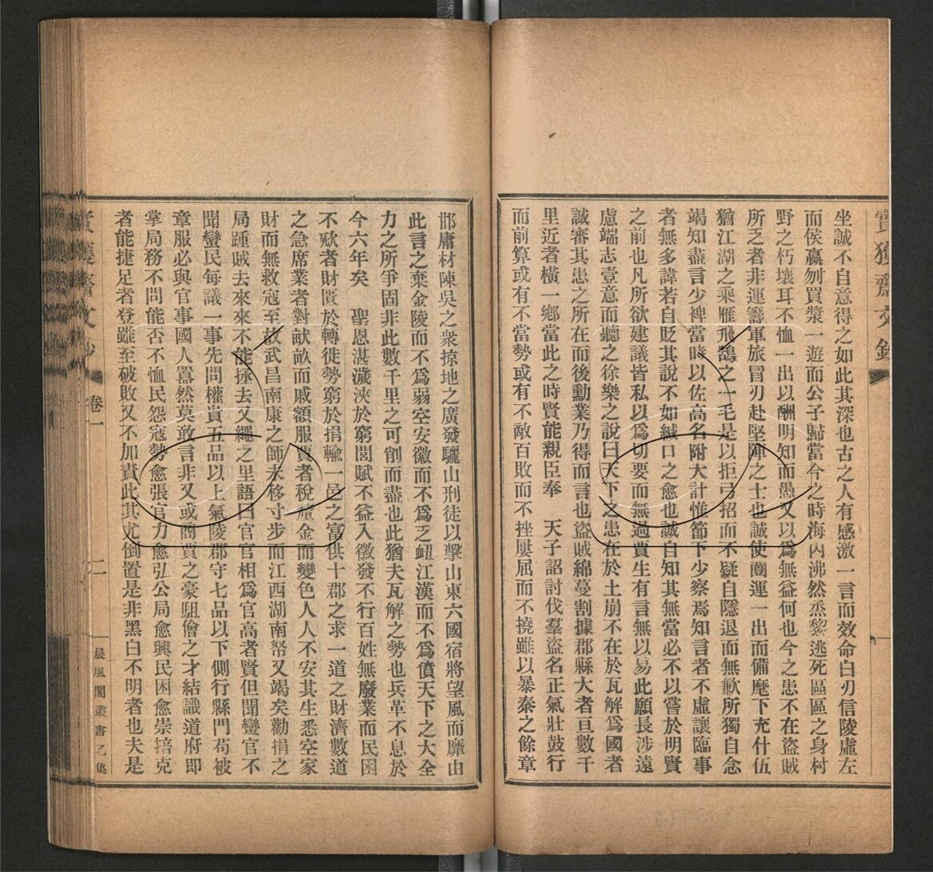 坐誠不自意得之如此其深也古之人有感激一言而效命白刃信陵虛左
而侯嬴刎買漿一遊而公子歸當今之時海內沸然烝黎逃死區區之身村
野之朽壤耳不恤一出以酬明知而愚又以為無益何也今之患不在盜賊
所乏者非運籌軍旅冒刃赴堅陣之士也誠使閫運一出而備麾下充什伍
猶江湖之乘雁飛鷁之一毛是以拒弓招而不疑自隱退而無歉所獨自念
竭知盡言少裨當時以佐高名附大計惟節下少察焉知言者不虛讓臨事
者無多諱若自貶其說不如緘口之愈也誠自知其無當必不以嘗於明賢
之前也凡所欲建議皆私以爲切要而無過賈生有言無以易此願長涉遠
慮端志壹意而聽之徐樂之說曰天下之患在於土崩不在於瓦解爲國者
誠審其患之所在而後勳業乃得而言也盜賊綿蔓割據郡縣大者亘數千
里近者橫一鄉當此之時賢能親臣奉　天子詔討伐羣盜名正氣壯鼓行
而前算或有不當勢或有不敵百敗而而不挫屢屈而不撓雖以暴秦之餘章
邯庸材陳吳之衆掠地之廣發驪山刑徒以擊山東六國宿將望風而靡由
此言之棄金陵而不爲弱空安徽而不爲乏衄江漢而不爲僨天下之大全
力之所爭固非此數千里之可削而盡也此猶夫瓦解之勢也兵革不息於
今六年矣　聖恩湛濊浹於窮閻賦不益入徵發不行百姓無廢業而民困
不歘者財匱於轉徙勢窮於捐輸一邑之富供十郡之求一道之財濟數道
之急席業者對畝畝而戚額服賈者稅釐金而變色人人不安其生悉空家
財而無救寇至故武昌南康之師未移寸步而江西湖南帑又竭矣勸捐之
局踵賊去來來不能拯去又繩之里語曰官官相爲官高者賢但聞蠻官不
聞蠻民每議一事先問權貴五品以上氣陵郡守七品以下側行縣門苟被
章服必與官事國人囂然莫敢言非又或商賈之豪駔儈之才結識道府即
掌局務不問能否不恤民怨寇勢愈張官力愈弘公局愈興民困愈崇掊克
者能捷足者登雖至破敗又不加責此其尤倒置是非黑白不明者也夫是
卷一
二
晨風閣叢書乙集